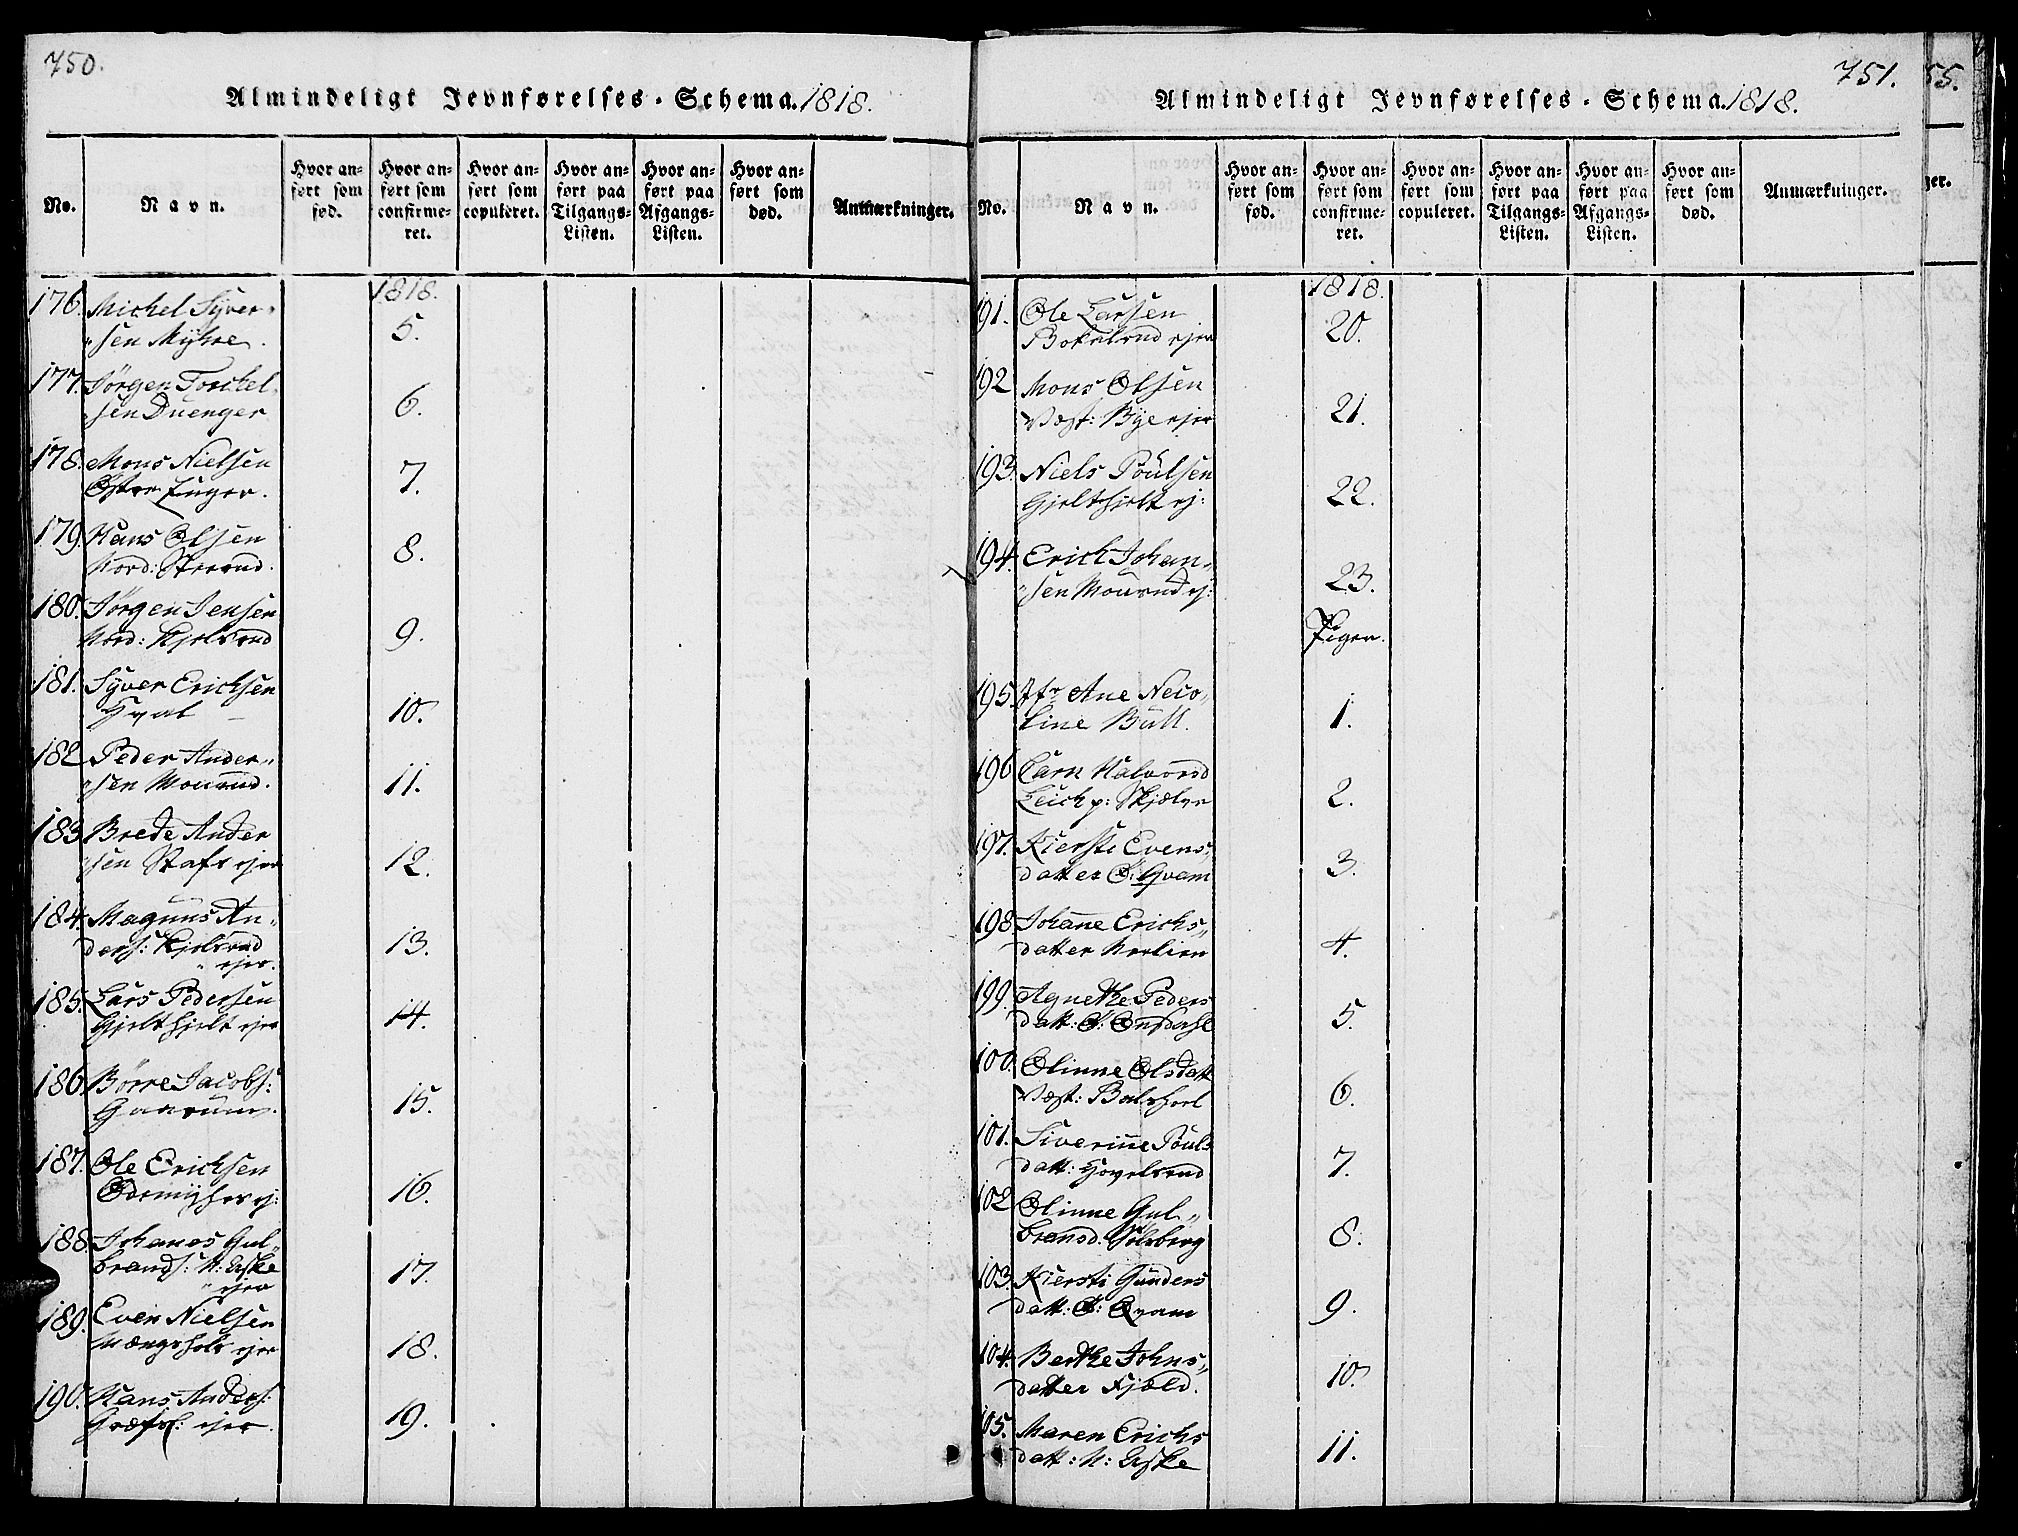 750.
Almindeligt Jevnførelses-Schema. 1818.
No.
Navn.
Hvor an-
ført som
fød.
Hvor an-
ført som
confirme-
ret.
Hvor an-
ført som
copuleret.
Hvor an-
ført paa
Tilgangs-
Listen.
Hvor an-
ført paa
Afgangs-
Listen.
Hvor an-
ført som
død.
Anmærkninger.
1818.
176. Michel Syver-
sen Myhre. 5.
177. Jörgen Torckel-
sen Duenger 6.
178. Mons Nielsen
Østre 7.
179. Hans Olsen
Nord: 8.
180. Jörgen Jensen
Nord: Kjelsrud 9.
181. Syver Erichsen
Hval 10.
182 Peder Ander-
sen Mourud. 11.
183 Brede Ander
sen Stafs ejer 12.
184. Magnus An-
ders: Kjelsrud
ejer. 13.
185. Lars Pedersen
Gjelthjelt ejer 14.
186. Börre Jacobs:
Gaarum. 15.
187. Ole Erichsen
Ødemyhr ej: 16.
188. Johanes Gul-
brands: N: Aske
ejer 17.
189. Even Nielsen
Mængshol ejer 18.
190. Hans Anders:
ejer 19.
751.
Almindeligt Jevnførelses-Schema. 1818.
No.
Navn.
Hvor an-
ført som
fød.
Hvor an-
ført som
confirme-
ret.
Hvor an-
ført som
copuleret.
Hvor an-
ført paa
Tilgangs-
Listen.
Hvor an-
ført paa
Afgangs-
Listen.
Hvor an-
ført som
død.
Anmærkninger.
1818.
191. Ole Larsen
ejer 20.
192 Mons Olsen
Vest: Bye ejer 21.
193. Niels Poulsen
Gjelthjelt ej: 22.
194. Erich Johan-
sen Mourud ej: 23.
Piger.
195. Jfr Ane Neco-
line Bull. 1.
196 Karn Halvord
2.
197. Kiersti Evens-
datter Ø: Qvam 3.
198 Johanne Erichs-
datter 4.
199. Agnethe Peders
datt: Ø: 5.
100. Olinne Olsdatt
Vest: Balshoel 6.
101. Siverinne Pouls
datt: Hovelsrud 7.
102 Olinne Gul-
bransd. Solsberg 8.
103. Kiersti Gunders
datt: Ø: Qvam 9.
104. Berthe Johns-
datter Fjæld. 10.
105. Maren Erichs
datt: N: Aske 11.
55.
ger.